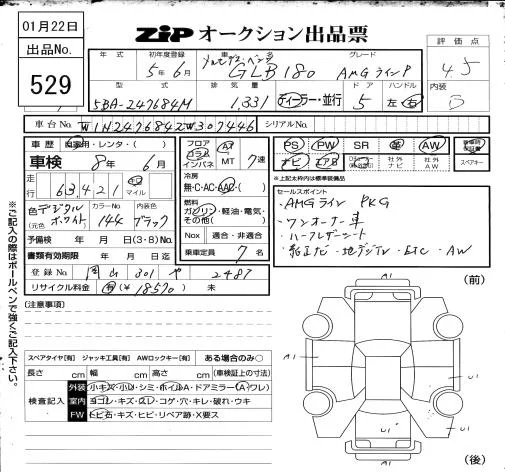 01月22日
出品No.
529
ZIP オークション出品票
評価点
4.5
内装
B
年式 初年度登録 車名 グレード
5年6月 メルセデス・ベンツ GLB180 AMGラインP
型式 排気量 ドア ハンドル
5BA-247684M 1,331 ディーラー・並行 5 左 右
車台No. W1N2476842W307446 シリアルNo.
車歴 自家用・レンタ・( )
車検 8年6月
走行 63,421 km マイル
色(元色) デジタルホワイト カラーNo. 144 内装色 ブラック
予備検 年 月 日(3・8)No.
書類有効期限 年 月 日迄
登録No. 岡山 301 や 2487
リサイクル料金 有(¥18570) 未
フロア コラム インパネ AT MT 7速
冷房 無・C・AC・AAC・( )
燃料 ガソリン・軽油・電気・その他( )
Nox 適合・非適合
乗車定員 7名
PS PW SR 革 AW
ナビ エアB 社外ナビ 社外AW
スペアキー
※上記太枠内は標準装備品
セールスポイント
・AMGライン PKG
・ワンオーナー車
・ハーフレザーシート
・純正ナビ・地デジTV・ETC・AW
(注意事項)
スペアタイヤ[有] ジャッキ工具[有] AWロックキー[有] ある場合のみ○
長さ cm 幅 cm 高さ cm (車検証上の寸法)
検査記入
外装 小キズ・小凹・シミ・ホイルA・ドアミラー(A・ワレ)
室内 ヨゴレ・キズ・スレ・コゲ・穴・キレ・破れ・ウキ
FW トビ石・キズ・ヒビ・リペア跡・X要ス
※ご記入の際はボールペンで強くご記入下さい。
(前)
A1
A1
U1
U1
A1
(後)